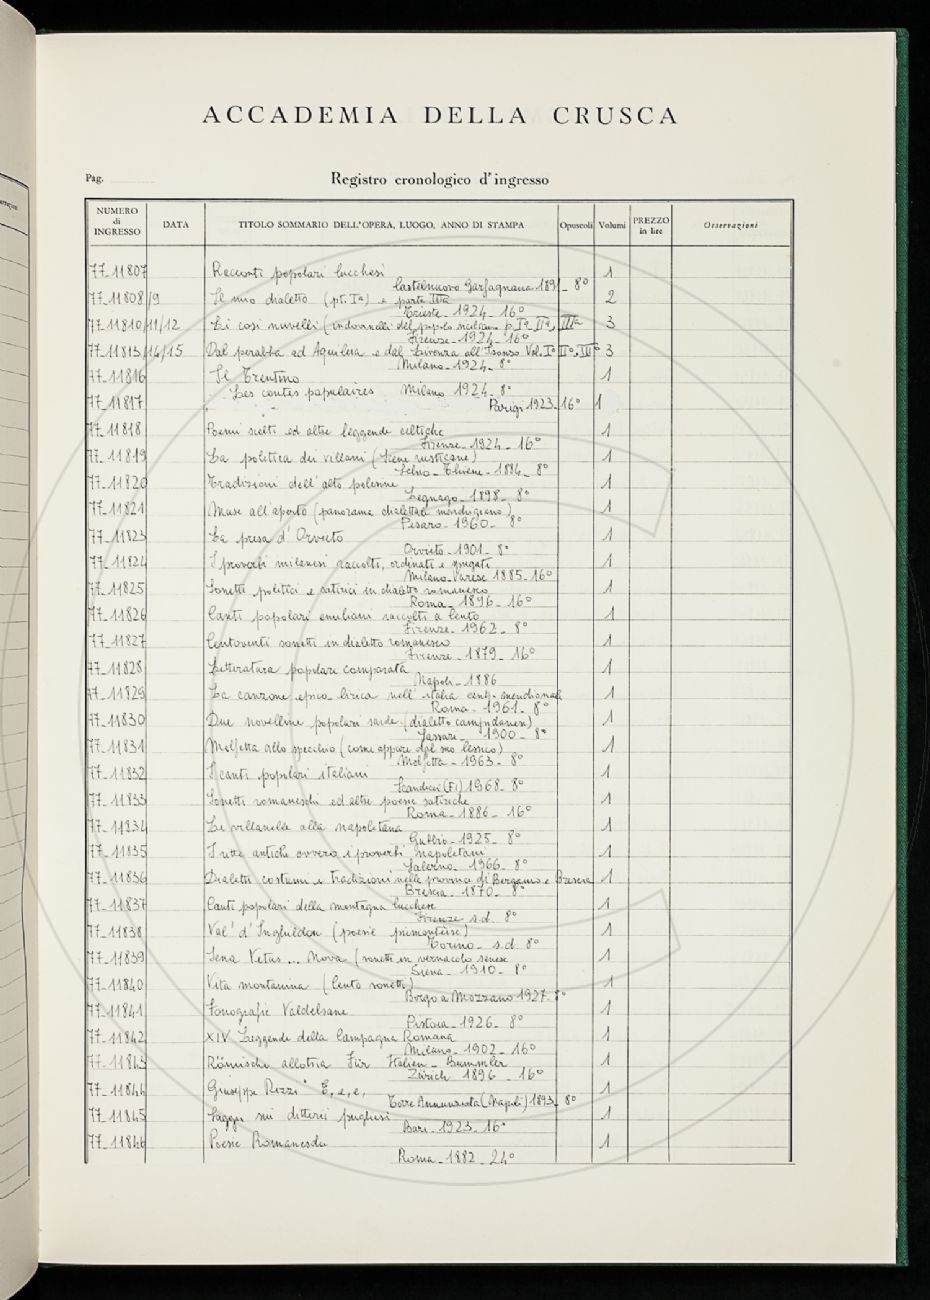 ACCADEMIA DELLA CRUSCA
Pag.
Registro cronologico d'ingresso
NUMERO di INGRESSO DATA TITOLO SOMMARIO DELL'OPERA, LUOGO, ANNO DI STAMPA Opuscoli Volumi PREZZO in lire Osservazioni
77-11807 Racconti popolari lucchesi 1
Castelnuovo Garfagnana 1891 - 8°
77-11808/9 Il mio dialetto (pt. Iª) e parte IIª 2
Trieste - 1924 - 16°
77-11810/11/12 Li cosi nuvelli (indovinelli del popolo siciliano p. Iª IIª, IIIª 3
Firenze - 1924 - 16°
77-11813/14/15 Dal peralba ad Aquileia e dal Livenza all'Isonzo Vol. I° II°, III° 3
Milano - 1924 - 8°
77-11816 Il Trentino 1
Milano 1924 - 8°
77-11817 Les contes populaires 1
Parigi 1923 - 16°
77-11818 Poemi scelti ed altre leggende celtiche 1
Firenze - 1924 - 16°
77-11819 La politica dei villani (Scene rusticane) 1
Schio - Thiene - 1884 - 8°
77-11820 Tradizioni dell'alto polesine 1
Legnago - 1898 - 8°
77-11821 Muse all'aperto (panorama dialettale marchigiano) 1
Pesaro - 1960 - 8°
77-11823 La presa d'Orvieto 1
Orvieto - 1901 - 8°
77-11824 I proverbi milanesi raccolti, ordinati e spiegati 1
Milano-Varese 1885 - 16°
77-11825 Sonetti politici e satirici in dialetto romanesco 1
Roma - 1896 - 16°
77-11826 Canti popolari emiliani raccolti a Cento 1
Firenze - 1962 - 8°
77-11827 Centoventi sonetti in dialetto romanesco 1
Firenze - 1879 - 16°
77-11828 Letteratura popolare comparata 1
Napoli - 1886
77-11829 La canzone epico lirica nell'italia cent. meridional 1
Roma - 1961 - 8°
77-11830 Due novelline popolari sarde (dialetto campidanese) 1
Sassari - 1900 - 8°
77-11831 Molfetta allo specchio (come appare dal suo lessico) 1
Molfetta - 1963 - 8°
77-11832 I canti popolari italiani 1
Scandicci (FI) 1968 - 8°
77-11833 Sonetti romaneschi ed altre poesie satiriche 1
Roma - 1886 - 16°
77-11834 Le villanelle alla napoletana 1
Gubbio - 1925 - 8°
77-11835 I ditte antiche ovvero i proverbi napoletani 1
Salerno - 1966 - 8°
77-11836 Dialetti costumi e tradizioni nelle province di Bergamo e Brescia 1
Brescia - 1870 - 8°
77-11837 Canti popolari della montagna lucchese 1
Firenze s.d. 8°
77-11838 Val' d'Inghildon (poesie piemonteise) 1
Torino - s.d. 8°
77-11839 Sena Vetus ... Nova (sonetti in vernacolo senese 1
Siena - 1910 - 8°
77-11840 Vita montanina (Cento sonetti) 1
Borgo a Mozzano 1927 - 8°
77-11841 Fonografie Valdelsane 1
Pistoia - 1926 - 8°
77-11842 XIV Leggende della Campagna Romana 1
Milano - 1902 - 16°
77-11843 Römische allotria Für Italien - Bummler 1
Zürich 1896 - 16°
77-11844 Giuseppe Rizzi "E, e, e, 1
Torre Annunziata (Napoli) 1893 - 8°
77-11845 Saggi sui ditterii pugliesi 1
Bari - 1923 - 16°
77-11846 Poesie Romanesche 1
Roma - 1882 - 24°